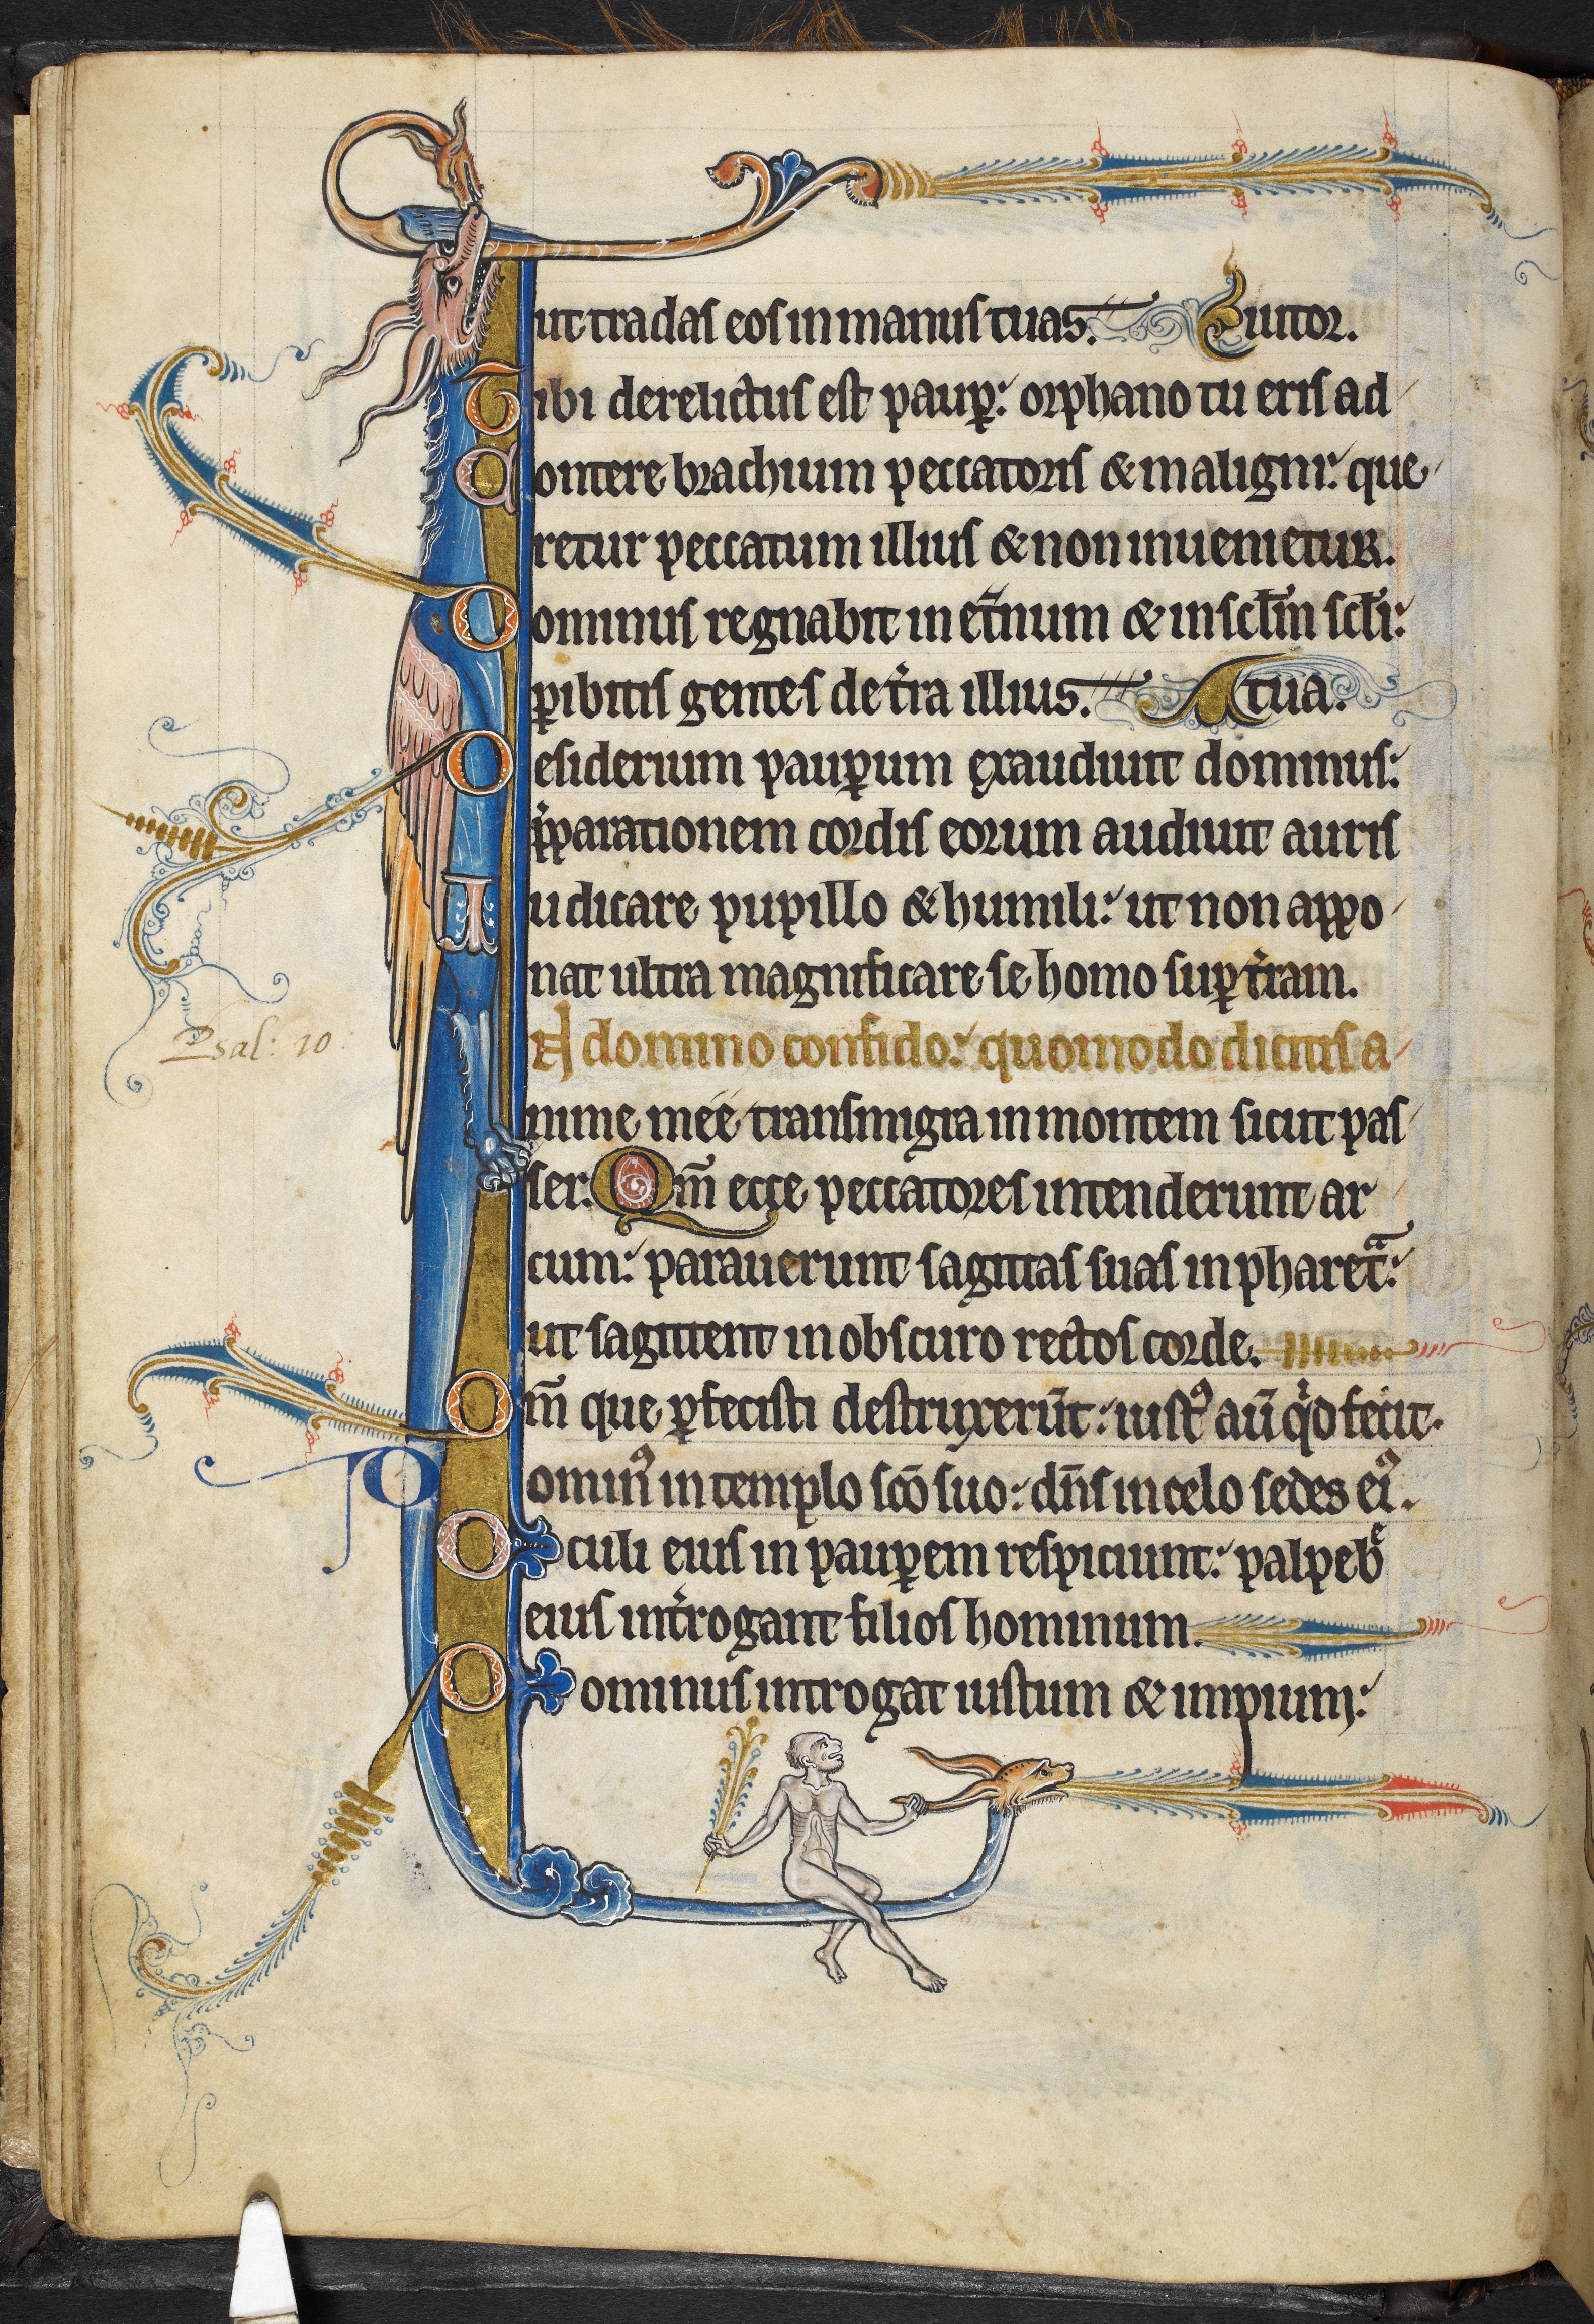 ut tradas eos in manus tuas. Iutor.
Tibi derelictus est paup̱: orphano tu eris ad
Contere brachium peccatoris & maligni: que
retur peccatum illius & non inuenietur.
Dominus regnabit in et̉num & in sc̄lm sc̄li:
ꝑibitis gentes de tr̉a illius. A tua.
Desiderium pauꝑum exaudiuit dominus:
p̄parationem cordis eorum audiuit auris
Iudicare pupillo & humili: ut non appo
nat ultra magnificare se homo suꝑ tr̉am.
IN domino confido: quomodo dicitis a
nime mee transmigra in montem sicut pas
Psal: 10:
ser. Qm̄ ecce peccatores intenderunt ar
cum: parauerunt sagittas suas in pharetᵃ:
ut sagittent in obscuro rectos corde.
Qm̄ que ꝑfecisti destruxerūt: iustꝰ aū qͥd fecit.
Dominꝰ in templo sc̄o suo: dn̄s in celo sedes eiꝰ.
Oculi eius in pauꝑem respiciunt: palpebᵉ
eius int̉rogant filios hominum.
Dominus introgat iustum & impium: